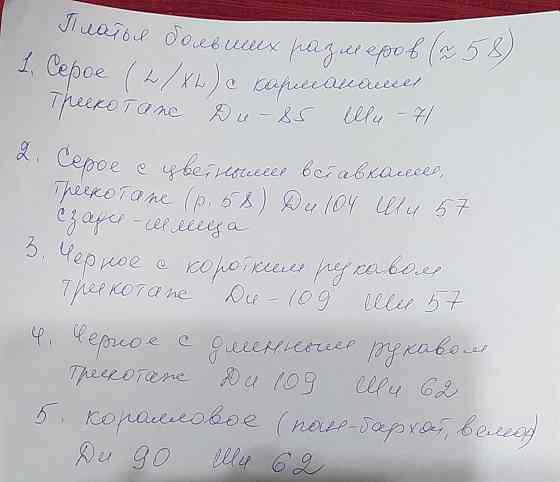 Платья больших размеров (≈58)
1. Серое (L/XL) с карманами
трикотаж Ди-85 Ши-71
2. Серое с цветными вставками,
трикотаж (р. 58) Ди 104 Ши 57
сзади-шлица
3. Черное с коротким рукавом
трикотаж Ди-109 Ши 57
4. Черное с длинным рукавом
трикотаж Ди 109 Ши 62
5. коралловое (пан-бархат, велюр)
Ди 90 Ши 62